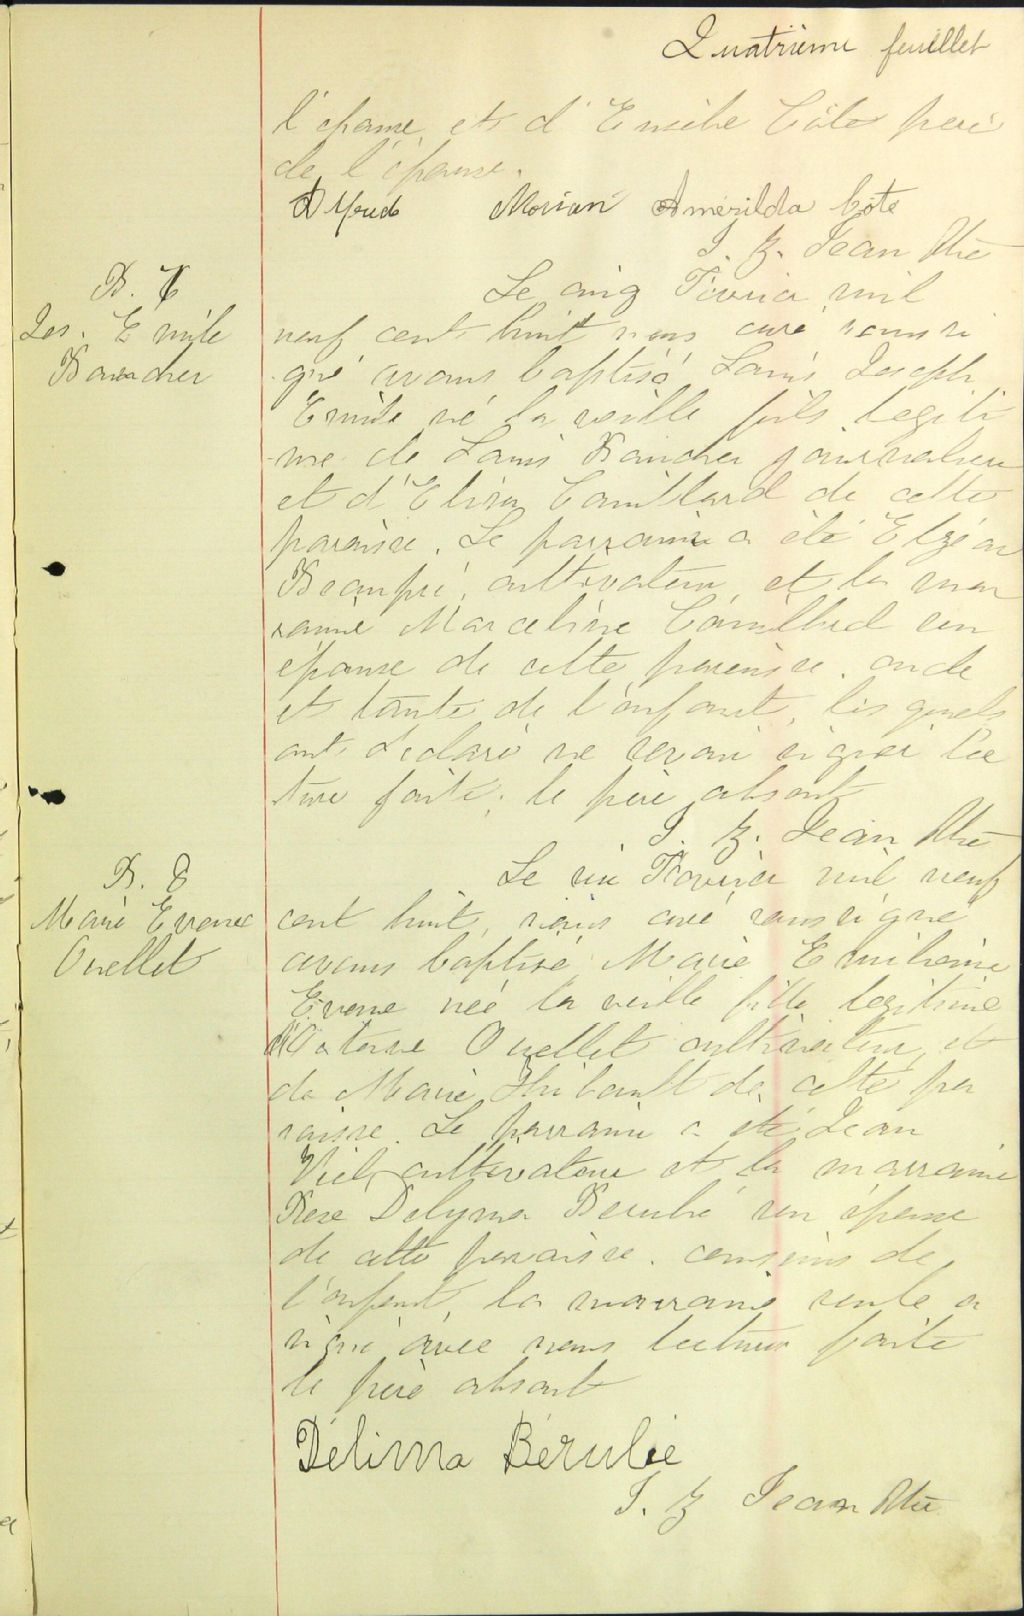 Quatrième feuillet
l'épouse, et d'Eusèbe Côté père
de l'épouse.
Alfred Morian Amérilda Côté
J. Jean Ptre
B. 7
Jos. Emile
Boucher
Le cinq Février mil
neuf cent huit nous curé soussi
gné avons baptisé Louis Joseph
Emile né la veille fils légiti
me de Louis Boucher journalier
et d'Elisa Couillard de cette
paroisse. Le parrain a été Elzéar
Beaupré, cultivateur, et la mar
raine Marceline Couillard son
épouse de cette paroisse. oncle
et tante de l'enfant, les quels
ont déclaré ne savoir signer lec
ture faite, le père absent
J. Jean Ptre
B. 8
Marie
Ouellet
Le six Février mil neuf
cent huit, nous curé soussigné
avons baptisé Marie
née la veille fille légitime
Ouellet cultivateur, et
de Marie Thibault de cette pa
roisse. Le parrain a été Jean
Viel, cultivateur et la marraine
Rose Delyma Berubé son épouse
de cette paroisse. cousins de
l'enfant, la marraine seule a
signé avec nous lecture faite
le père absent
Délima Bérubée
J. Jean Ptre